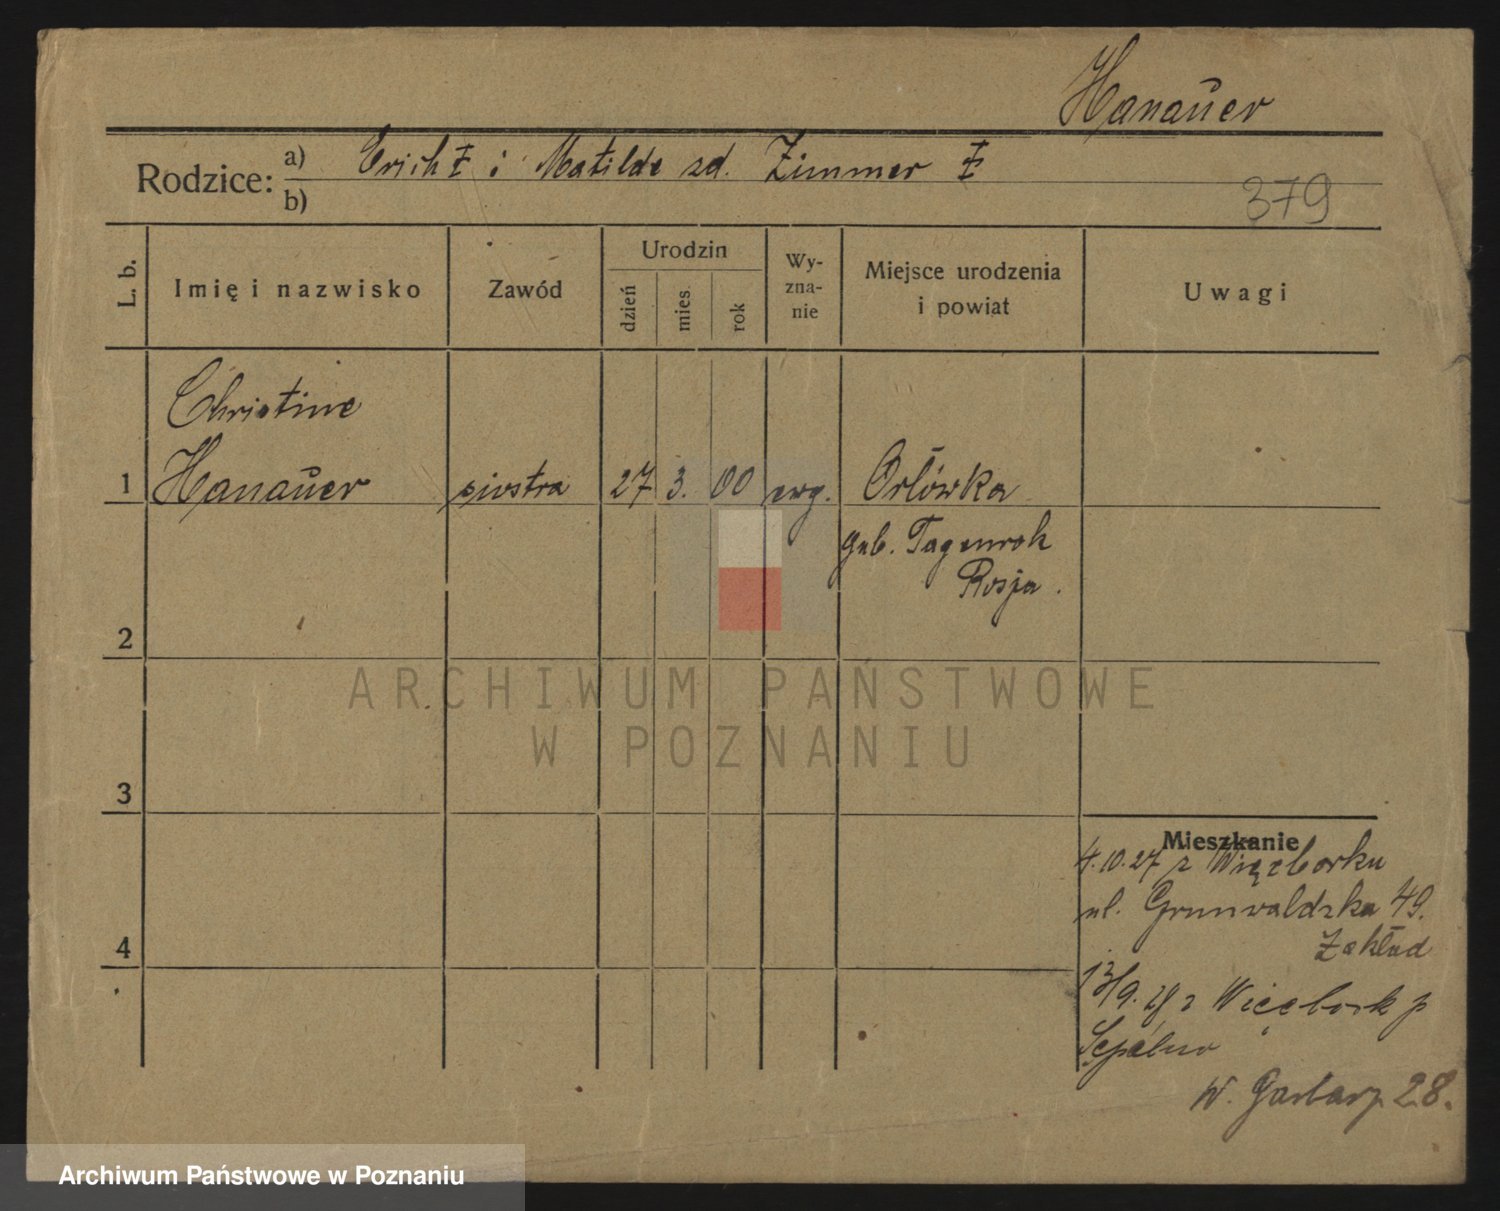 Hanaŭer
Rodzice: a) Erich ‡ i Matilde zd. Zimmer ‡
b)
379
L. b.
Imię i nazwisko
Zawód
Urodzin
dzień
mies.
rok
Wy-
zna-
nie
Miejsce urodzenia
i powiat
Uwagi
Christine
1 Hanaŭer siostra 27 3. 00 ewg. Orłówka
gub. Tagenrok
Rosja.
2
ARCHIWUM PAŃSTWOWE
W POZNANIU
3
Mieszkanie
4.10.27 z Więcborku
ul. Grunwaldzka 49.
Zakład
4
13/9. z Więcbork p
Sępólno
W. Garbary 28.
Archiwum Państwowe w Poznaniu